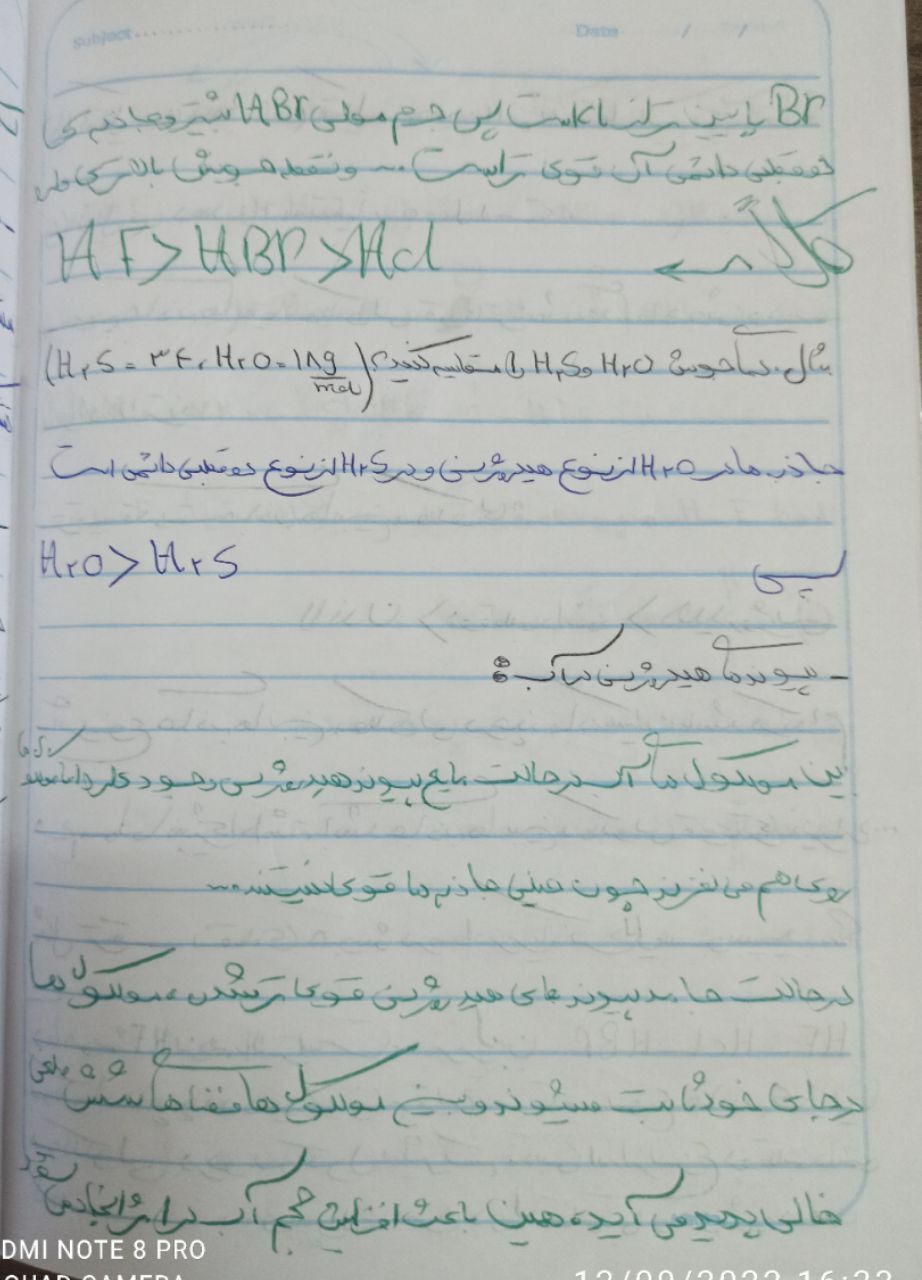 Subject Date / /
Br پایین تر از Cl است پس جرم مولی HBr بیشتر و جاذبه ی
دو قطبی دائمی آن قوی تر است ... و نقطه جوش بالاتری دارد
کلاً ←
HF > HBr > HCl
مثال: دمای جوش H۲O و H۲S را مقایسه کنید؟ (H۲S = ۳۴، H۲O = ۱۸ g/mol)
جاذبه ها در H۲O از نوع هیدروژنی و در H۲S از نوع دو قطبی دائمی است
پس H۲O > H۲S
- پیوندهای هیدروژنی در آب:
بین مولکول های آب در حالت مایع پیوند هیدروژنی وجود دارد اما مولکول ها
روی هم می لغزند چون خیلی جاذبه ها قوی نیستند...
در حالت جامد پیوند های هیدروژنی قوی تر شدن، مولکول ها
در جای خود ثابت میشوند و بین مولکول ها فضاهای شش ضلعی
خالی پدید می آید، همین باعث افزایش حجم آب در اثر انجماد
DMI NOTE 8 PRO
QUAD CAMERA